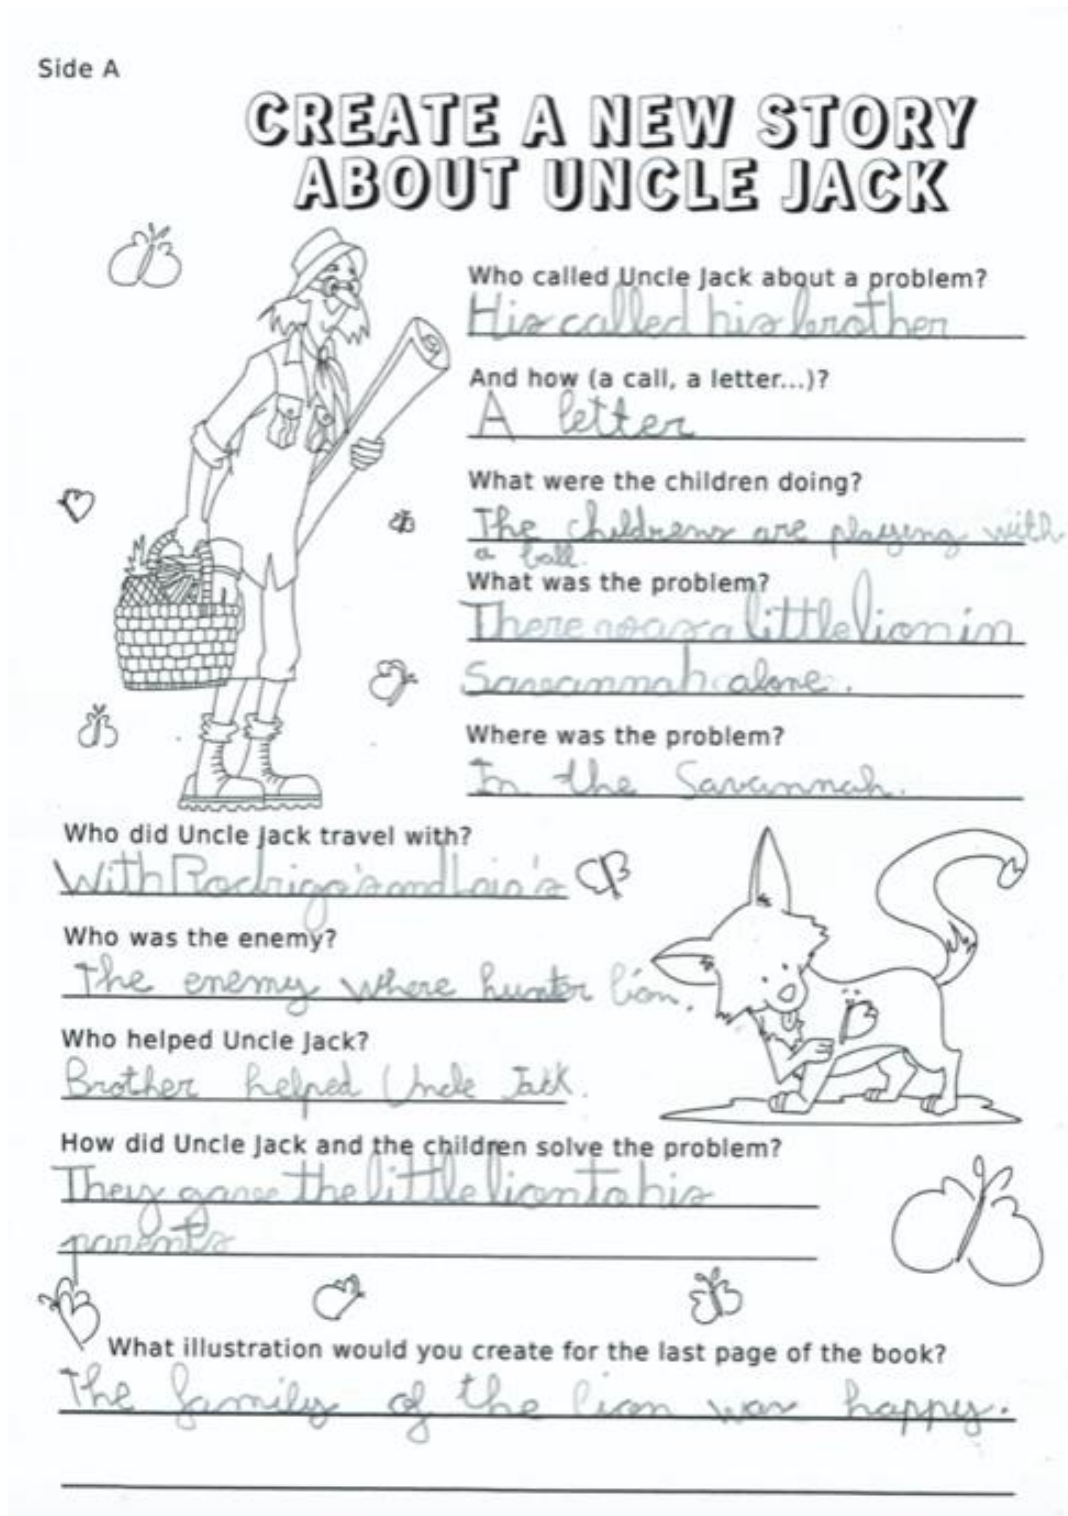 Side A
CREATE A NEW STORY
ABOUT UNCLE JACK
Who called Uncle Jack about a problem?
His called his brother
And how (a call, a letter...)?
A letter
What were the children doing?
The childrens are playing with
a ball.
What was the problem?
There was a little lion in
Savannah alone.
Where was the problem?
In the Savannah.
Who did Uncle Jack travel with?
With Rodrigo's and Laia's
Who was the enemy?
The enemy where hunter lion.
Who helped Uncle Jack?
Brother helped Uncle Jack.
How did Uncle Jack and the children solve the problem?
They gave the little lion to his
parents
What illustration would you create for the last page of the book?
The family of the lion was happy.